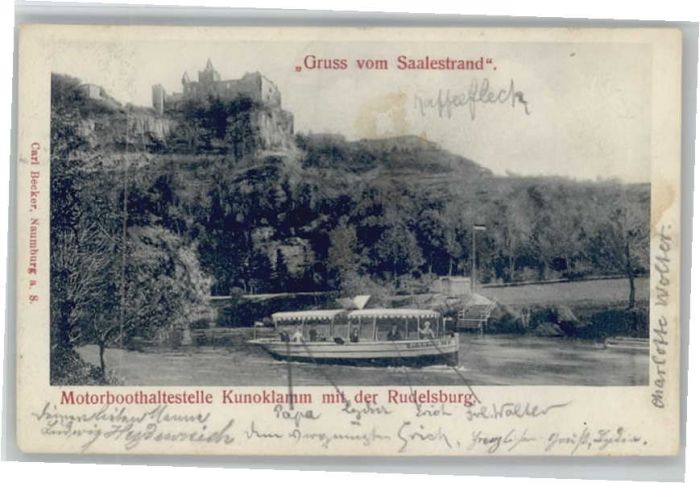 „Gruss vom Saalestrand“.
Kaffeefleck
Carl Becker, Naumburg a. S.
Charlotte Wolter.
Motorboothaltestelle Kunoklamm mit der Rudelsburg.
Papa Lydia Erich Wolter
Ludwig Heydenreich dem vergnügten Erich, herzlichen Gruß, Lydia.